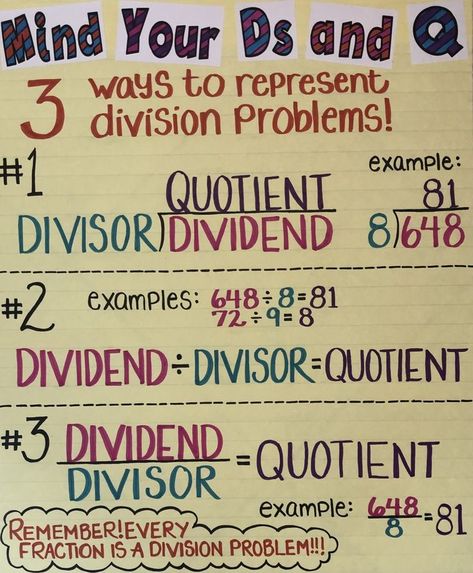 Mind Your Ds and Q
3 ways to represent
division Problems!
#1
QUOTIENT
DIVISOR)DIVIDEND
example:
81
8)648
#2 examples: 648÷8=81
72÷9=8
DIVIDEND÷DIVISOR=QUOTIENT
#3 DIVIDEND
DIVISOR
=QUOTIENT
example: 648
8
=81
REMEMBER! EVERY
FRACTION IS A DIVISION PROBLEM!!!